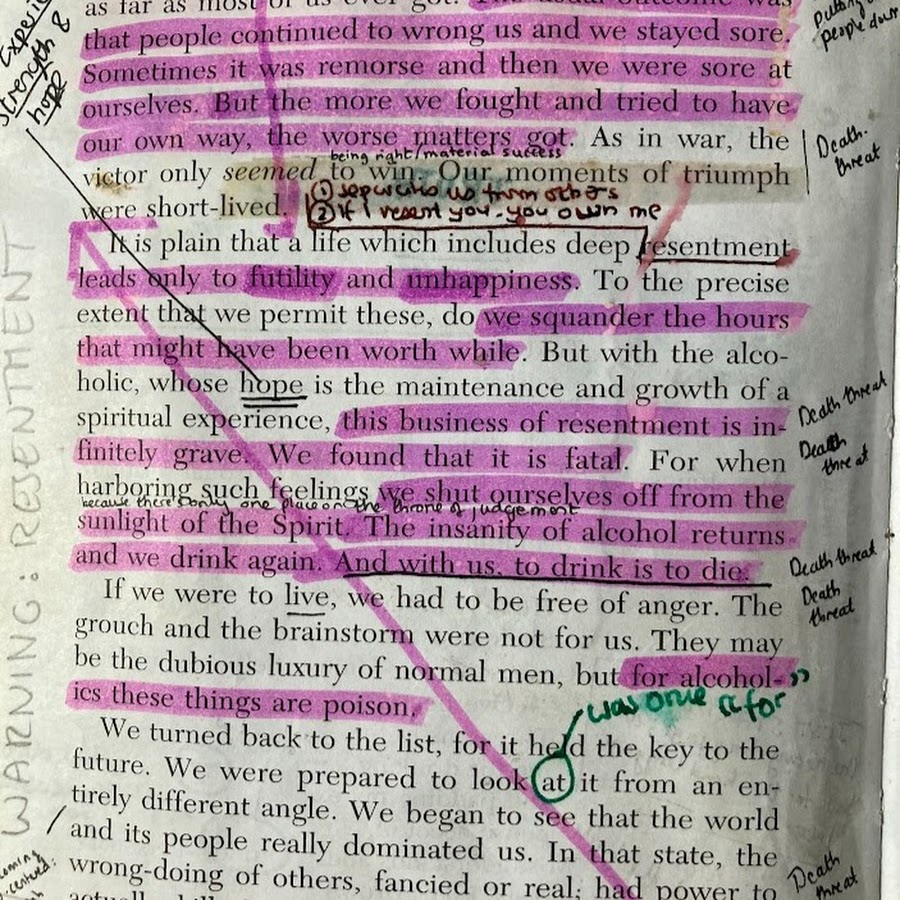 as far as most of us ever got. The usual outcome was
that people continued to wrong us and we stayed sore.
Sometimes it was remorse and then we were sore at
ourselves. But the more we fought and tried to have
our own way, the worse matters got. As in war, the
being right/material success
victor only seemed to win. Our moments of triumph
① separates us from others
were short-lived.
② If I resent you - you own me
It is plain that a life which includes deep resentment
leads only to futility and unhappiness. To the precise
extent that we permit these, do we squander the hours
that might have been worth while. But with the alco-
holic, whose hope is the maintenance and growth of a
spiritual experience, this business of resentment is in-
finitely grave. We found that it is fatal. For when
harboring such feelings we shut ourselves off from the
because there's only one place on the throne of judgement
sunlight of the Spirit. The insanity of alcohol returns
and we drink again. And with us, to drink is to die.
If we were to live, we had to be free of anger. The
grouch and the brainstorm were not for us. They may
be the dubious luxury of normal men, but for alcohol-
ics these things are poison.
We turned back to the list, for it held the key to the
future. We were prepared to look at it from an en-
tirely different angle. We began to see that the world
and its people really dominated us. In that state, the
wrong-doing of others, fancied or real, had power to
actually
Experience
Strength &
hope
WARNING: RESENTMENT
putting
people down
Death
threat
Death threat
Death
threat
Death threat
Death
threat
Death
threat